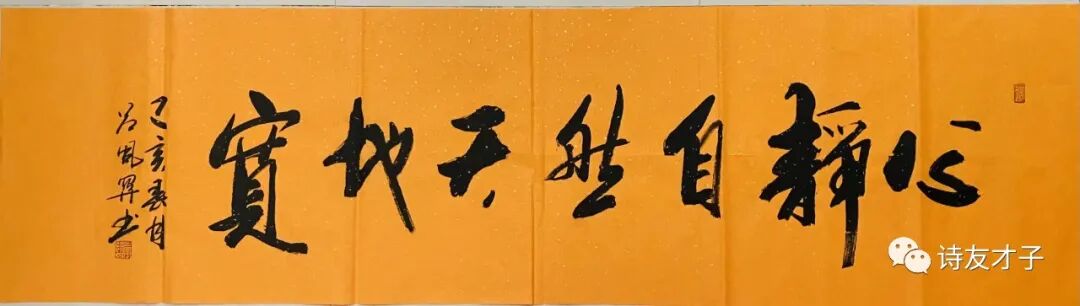 心靜自然天地寬
己亥春月
吕 书
诗友才子